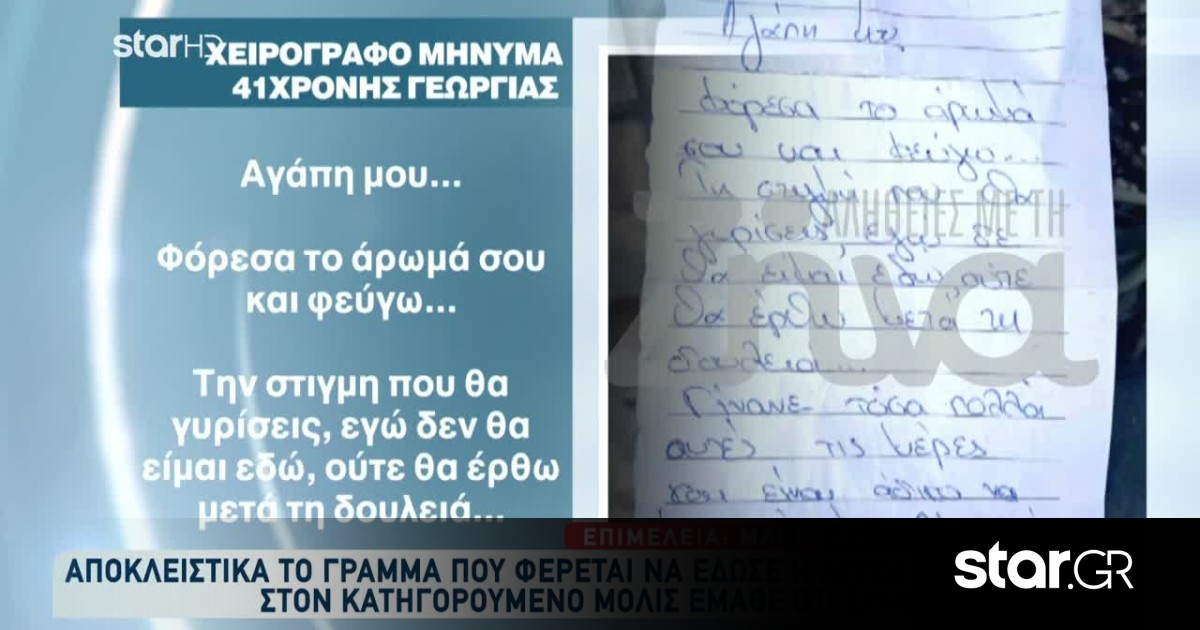 starHD
ΧΕΙΡΟΓΡΑΦΟ ΜΗΝΥΜΑ
41ΧΡΟΝΗΣ ΓΕΩΡΓΙΑΣ
Αγάπη μου...
Φόρεσα το άρωμά σου
και φεύγω...
Την στιγμη που θα
γυρίσεις, εγώ δεν θα
είμαι εδώ, ούτε θα έρθω
μετά τη δουλειά...
Αγάπη μου
Φόρεσα το άρωμά
σου και φεύγω...
Τη στιγμή που θα
γυρίσεις, εγώ δε
θα είμαι εδω, ούτε
θα έρθω μετά τη
δουλεια...
Γίνανε τόσα πολλά
αυτές τις μέρες
και είναι άδικο να
ΑΛΗΘΕΙΕΣ ΜΕ ΤΗ
Ζήνα
ΕΠΙΜΕΛΕΙΑ:
ΑΠΟΚΛΕΙΣΤΙΚΑ ΤΟ ΓΡΑΜΜΑ ΠΟΥ ΦΕΡΕΤΑΙ ΝΑ ΕΔΩΣΕ
ΣΤΟΝ ΚΑΤΗΓΟΡΟΥΜΕΝΟ ΜΟΛΙΣ ΕΜΑΘΕ ΟΤΙ
star.GR